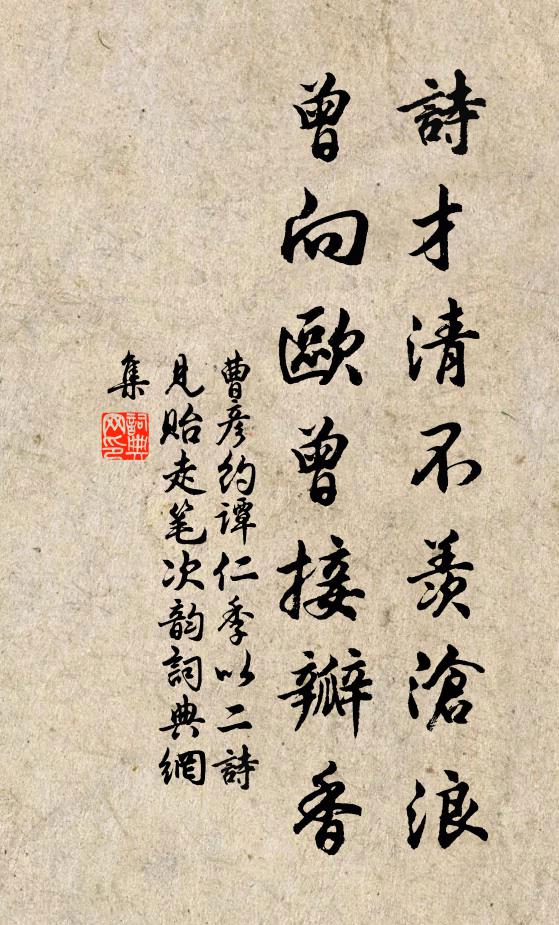 詩才清不羨滄浪
曾向歐曾接瓣香
曹彦約譚仁季以二詩
見貽走笔次韵詞典網
集
詞典
网印